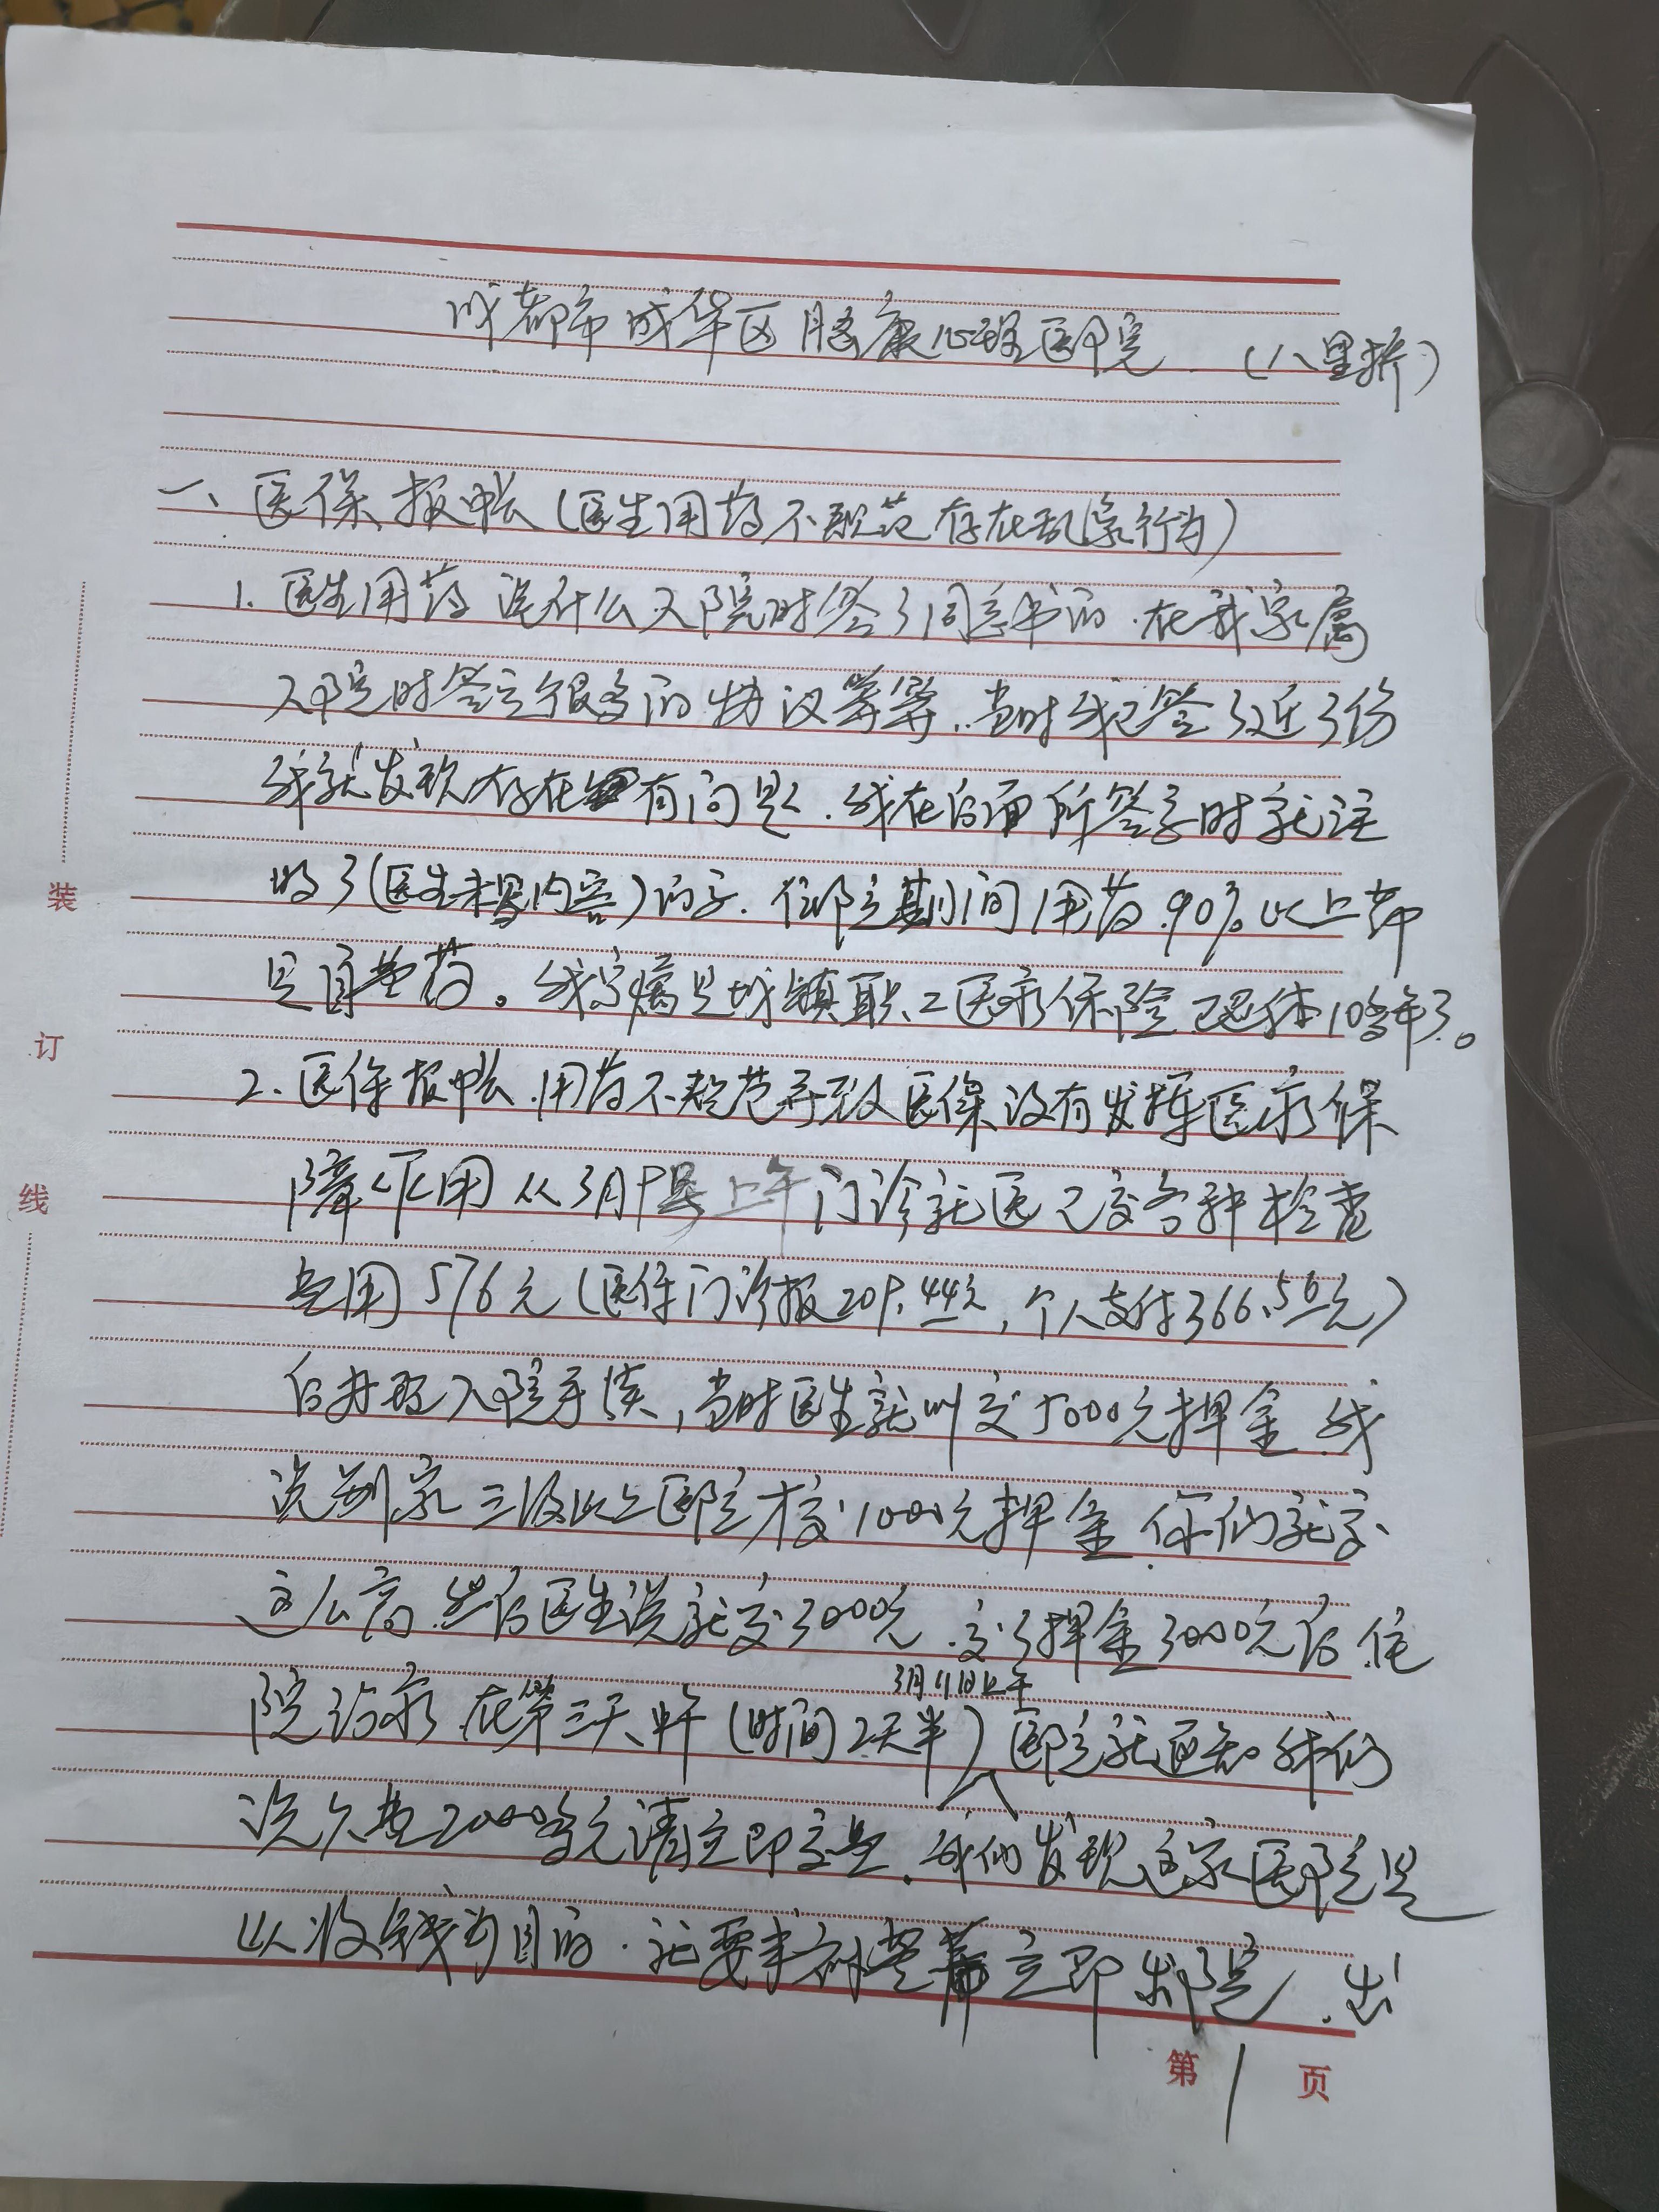 成都市成华区脑康心理医院 (八里桥)
一、医保报帐(医生用药不规范存在乱家行为)
1.医生用药 说什么入院时签了同意书的.在我家属
入院时签定很多的协议等等.当时我已签了近3份
我就发现存在有问题.我在后面所签字时就注
明了(医生未写内容)的字.住院期间用药.90%以上都
是自费药。我家属是城镇职工医疗保险 已退休10多年了。
2.医保报帐.用药不规范导致医保没有发挥医疗保
障作用 从3月9号上午门诊就医已交各种检查
费用576元(医保门诊报209.44元,个人支付366.56元)
后办理入院手续,当时医生就叫交5000元押金 我
说别家三级以上医院才交1000元押金 你们就交
这么高.然后医生说就交3000元.交了押金3000元后 住
3月11日上午
院治疗.在第三天中午(时间2天半)医院就通知我们
说欠费2000多元请立即交费.我们发现这家医院是
以收钱为目的.就要求立即出院.出
装
订
线
第1页